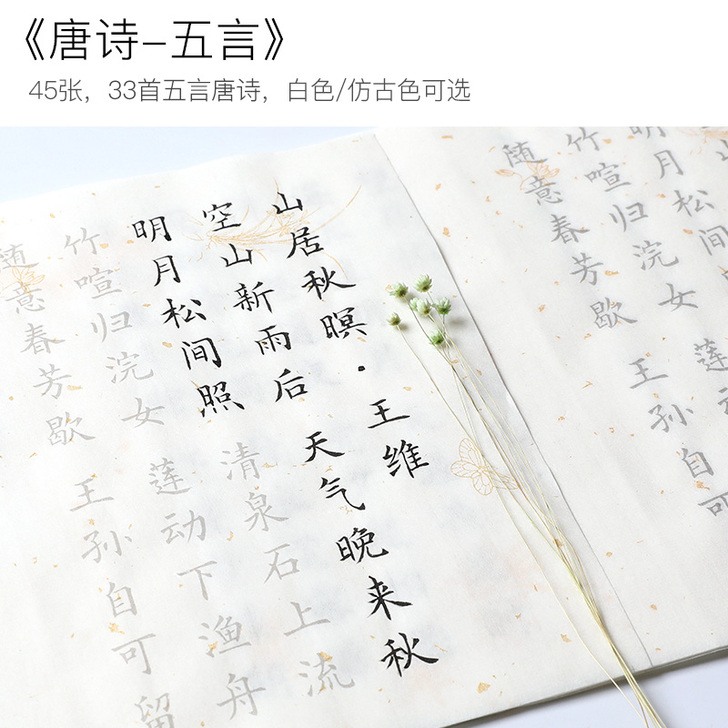 《唐诗-五言》
45张，33首五言唐诗，白色/仿古色可选
山居秋暝·王维
空山新雨后 天气晚来秋
明月松间照 清泉石上流
竹喧归浣女 莲动下渔舟
随意春芳歇 王孙自可留
明月松间
竹喧归浣女 莲
随意春芳歇 王孙自可